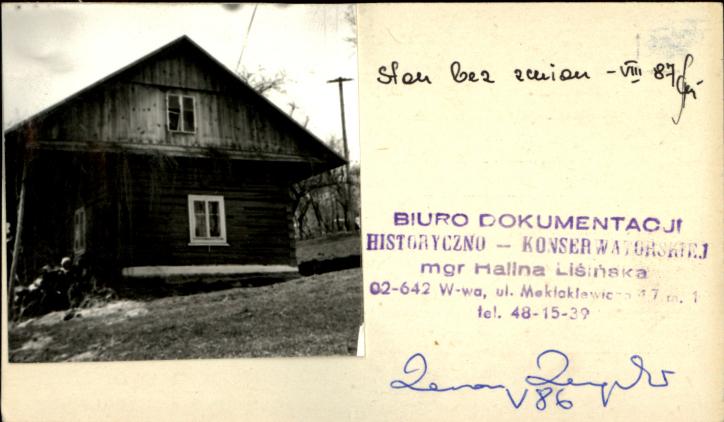 Stan bez zmian - VIII 87
BIURO DOKUMENTACJI
HISTORYCZNO - KONSERWATORSKIEJ
mgr Halina Lisińska
02-642 W-wa, ul. Mekłaklewicza 17 m. 1
tel. 48-15-39
Zenon
V 86